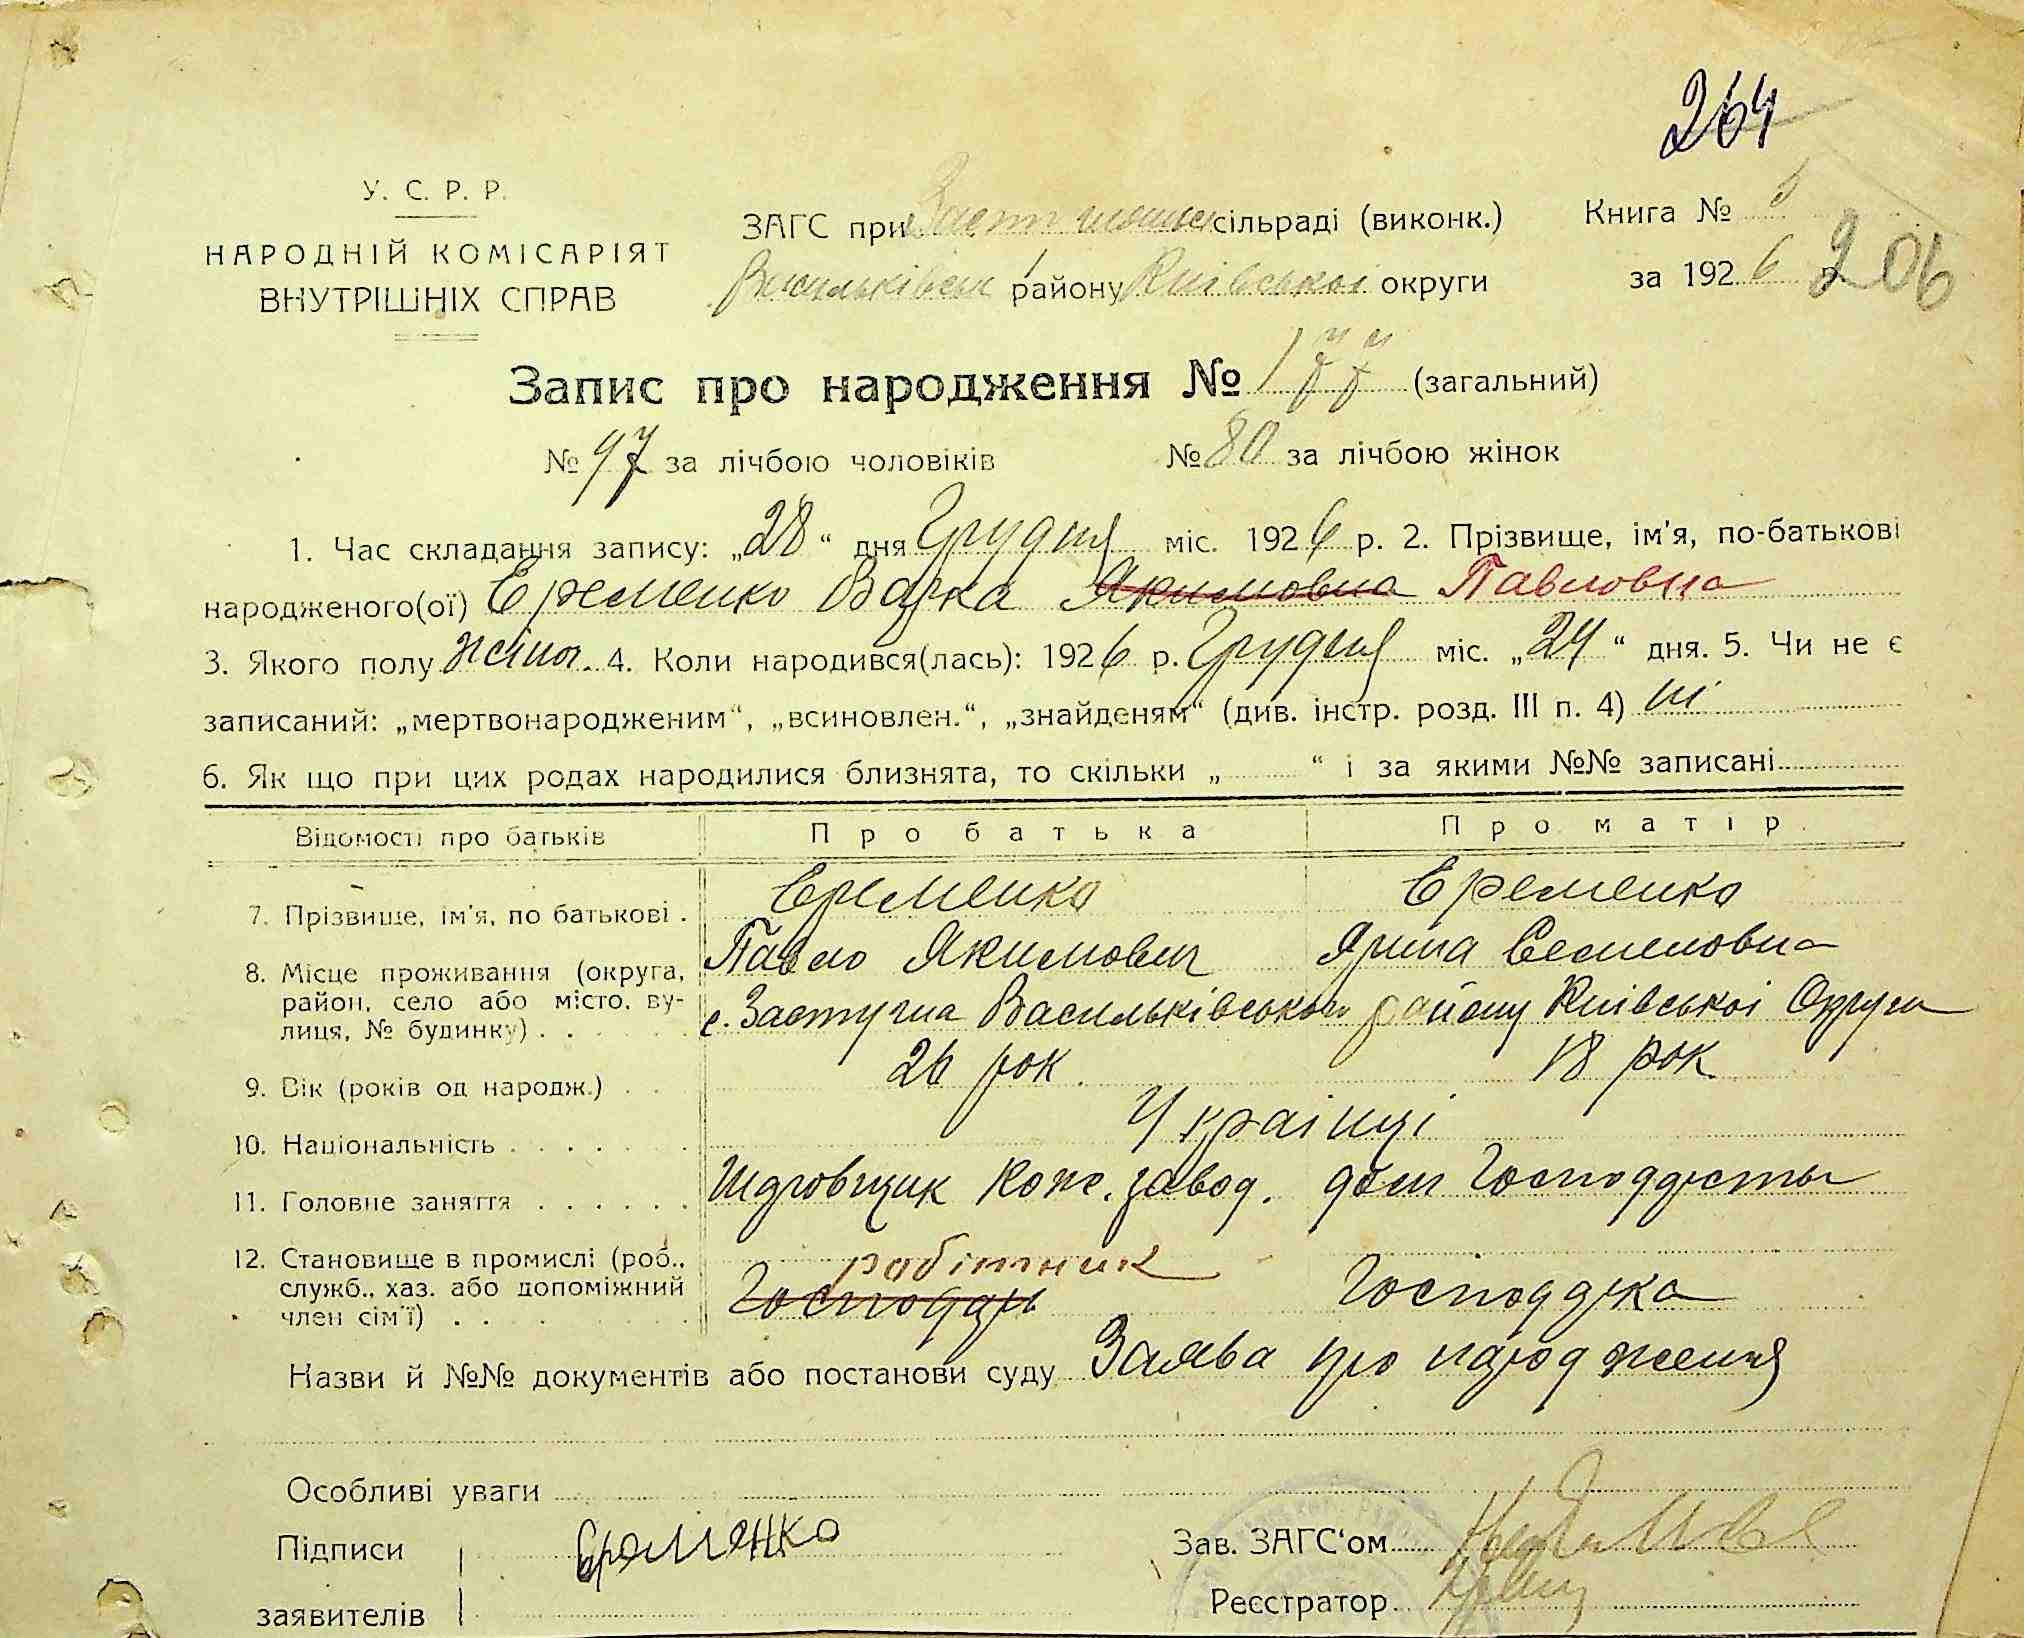 264
У. С. Р. Р.
НАРОДНІЙ КОМІСАРІЯТ
ВНУТРІШНІХ СПРАВ
ЗАГС при сільраді (виконк.)
Васильківськ району Київської округи
Книга №
за 1926 р.
206
Запис про народження № 177 (загальний)
№ 97 за лічбою чоловіків № 80 за лічбою жінок
1. Час складання запису: „28“ дня Грудня міс. 1926 р. 2. Прізвище, ім'я, по-батькові
народженого(ої) Еременко Варка Якимовна Павловна
3. Якого полу жіноч. 4. Коли народився(лась): 1926 р. Грудня міс. „24“ дня. 5. Чи не є
записаний: „мертвонародженим“, „всиновлен.“, „знайденям“ (див. інстр. розд. III п. 4) ні
6. Як що при цих родах народилися близнята, то скільки „ “ і за якими №№ записані
Відомості про батьків Про батька Про матір
7. Прізвище, ім'я, по батькові . Еременко Еременко
Павло Якимович Ярина Семеновна
8. Місце проживання (округа,
район, село або місто, ву-
лиця, № будинку) . . с. Застугна Васильківського району Київської Округи
9. Вік (років од народж.) . . 26 рок 18 рок
10. Національність . . . . . . Українці
11. Головне заняття . . . . . . Шдговщик Кож. завод. дом Господарсты
12. Становище в промислі (роб.,
служб., хаз. або допоміжний
член сім'ї) . . робітник
Господарь Господарка
Назви й №№ документів або постанови суду Заява про народження
Особливі уваги
Підписи Ероменко
заявителів
Зав. ЗАГС'ом
Реєстратор